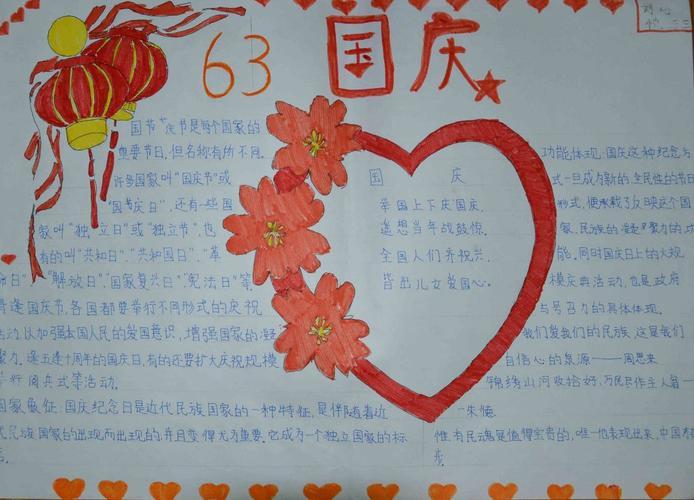 63 国庆
国节庆节是每个国家的
重要节日,但名称有所不同。
许多国家叫“国庆节”或
“国庆日”,还有一些国
家叫“独立日”或“独立节”,也
有的叫“共和日”、“共和国日”、“革
命日”、“解放日”、“国家复兴日”、“宪法日”等
逢国庆节,各国都要举行不同形式的庆祝
活动,以加强本国人民的爱国意识,增强国家的凝
聚力。逢五逢十周年的国庆日,有的还要扩大庆祝规模
举行阅兵式等活动。
国家象征:国庆纪念日是近代民族国家的一种特征,是伴随着近
代民族国家的出现而出现的,并且变得尤为重要。它成为一个独立国家的标
志。
国 庆
举国上下庆国庆,
遥想当年战鼓惊。
全国人们齐祝兴,
皆出儿女爱国心。
功能体现:国庆这种纪念与
式一旦成为新的、全民性的节日
形式,便承载了反映这个国
家、民族的凝聚力的功
能。同时国庆日上的大规
模庆典活动,也是政府
与号召力的具体体现。
我们爱我们的民族,这是我们
自信心的泉源——周恩来
锦绣山河收拾好,万民尽作主人翁—
—朱德
惟有民魂是值得宝贵的,唯一他表现出来,中国才有
步。